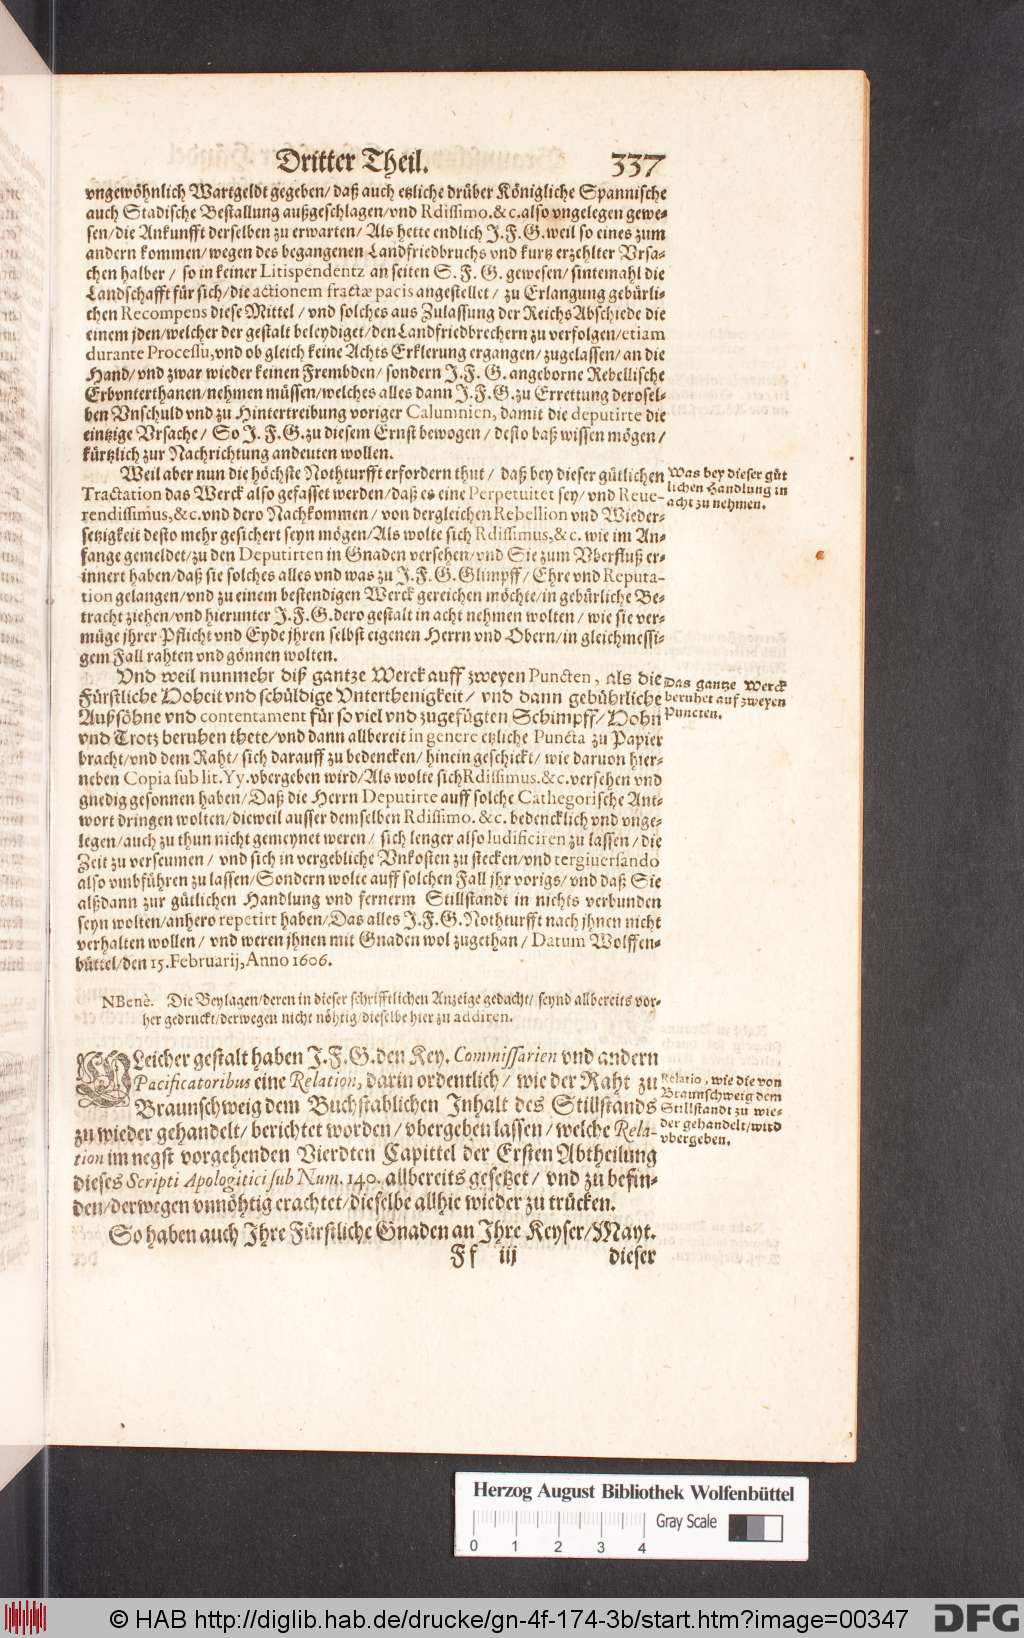 Dritter Theil. 337
vngewöhnlich Wartgeldt gegeben/ daß auch etzliche drüber Königliche Spannische
auch Stadische Bestallung außgeschlagen/vnd Rdissimo.&c.also vngelegen gewe-
sen/die Ankunfft derselben zu erwarten/ Als hette endlich J.F.G.weil so eines zum
andern kommen/wegen des begangenen Landfriedbruchs vnd kurtz erzehlter Vrsa-
chen halber/ so in keiner Litispendentz an seiten S. F. G. gewesen/sintemahl die
Landschafft für sich/die actionem fractæ pacis angestellet/ zu Erlangung gebürli-
chen Recompens diese Mittel/vnd solches aus Zulassung der ReichsAbschiede die
einem jden/welcher der gestalt beleydiget/den Landfriedbrechern zu verfolgen/etiam
durante Processu,vnd ob gleich keine Achts Erklerung ergangen/zugelassen/an die
Hand/vnd zwar wieder keinen Frembden/ sondern J.F.G. angeborne Rebellische
Erbvnterthanen/nehmen müssen/welches alles dann J.F.G.zu Errettung derosel-
ben Vnschuld vnd zu Hintertreibung voriger Calumnien, damit die deputirte die
eintzige Vrsache/ So J. F.G.zu diesem Ernst bewogen/ desto baß wissen mögen/
kürtzlich zur Nachrichtung andeuten wollen.
Weil aber nun die höchste Nothturfft erfordern thut/ daß bey dieser gütlichen
Tractation das Werck also gefasset werden/daß es eine Perpetuitet sey/vnd Reue-
rendissimus,&c.vnd dero Nachkommen/ von dergleichen Rebellion vnd Wieder-
setzigkeit desto mehr gesichert seyn mögen/Als wolte sich Rdissimus,&c. wie im An-
fange gemeldet/zu den Deputirten in Gnaden versehen/vnd Sie zum Vberfluß er-
innert haben/daß sie solches alles vnd was zu J.F.G.Glimpff/Ehre vnd Reputa-
tion gelangen/vnd zu einem bestendigen Werck gereichen möchte/in gebürliche Be-
tracht ziehen/vnd hierunter J.F.G.dero gestalt in acht nehmen wolten/ wie sie ver-
müge jhrer Pflicht vnd Eyde jhren selbst eigenen Herrn vnd Obern/in gleichmessi-
gem Fall rahten vnd gönnen wolten.
Was bey dieser güt
lichen Handlung in
acht zu nehmen.
Vnd weil nunmehr diß gantze Werck auff zweyen Puncten, als die
Fürstliche Hoheit vnd schüldige Vnterthenigkeit/ vnd dann gebührliche
Außsöhne vnd contentament für so viel vnd zugefügten Schimpff/Hohn
vnd Trotz beruhen thete/vnd dann allbereit in genere etzliche Puncta zu Papier
bracht/vnd dem Raht/sich darauff zu bedencken/hinein geschickt/wie daruon hier-
neben Copia sub lit.Yy.vbergeben wird/Als wolte sich Rdissimus.&c.versehen vnd
gnedig gesonnen haben/Daß die Herrn Deputirte auff solche Cathegorische Ant-
wort dringen wolten/dieweil ausser demselben Rdissimo. &c. bedencklich vnd vnge-
legen/auch zu thun nicht gemeynet weren/ sich lenger also ludificiren zu lassen/die
Zeit zu verseumen/ vnd sich in vergebliche Vnkosten zu stecken/vnd tergiuersando
also vmbführen zu lassen/Sondern wolte auff solchen Fall jhr vorigs/vnd daß Sie
alßdann zur gütlichen Handlung vnd fernerm Stillstandt in nichts verbunden
seyn wolten/anhero repetirt haben/Das alles J.F.G.Nothturfft nach jhnen nicht
verhalten wollen/ vnd weren jhnen mit Gnaden wol zugethan/Datum Wolffen-
büttel/den 15.Februarij,Anno 1606.
Das gantze Werck
beruhet auf zweyen
Puncten.
NBenè. Die Beylagen/deren in dieser schrifftlichen Anzeige gedacht/ seynd allbereits vor-
her gedruckt/derwegen nicht nöhtig/dieselbe hier zu addiren.
GLeicher gestalt haben J.F.G.den Key. Commissarien vnd andern
Pacificatoribus eine Relation, darin ordentlich/ wie der Raht zu
Braunschweig dem Buchstablichen Inhalt des Stillstands
zu wieder gehandelt/berichtet worden/vbergeben lassen/welche Rela-
tion im negst vorgehenden Vierdten Capittel der Ersten Abtheilung
dieses Scripti Apologitici sub Num. 140. allbereits gesetzet/ vnd zu befin-
den/derwegen vnnöhtig erachtet/dieselbe allhie wieder zu trücken.
Relatio, wie die von
Braunschweig dem
Stillstandt zu wie-
der gehandelt/wird
vbergeben.
So haben auch Ihre Fürstliche Gnaden an Ihre Keyser/Mayt.
Ff iij dieser
Herzog August Bibliothek Wolfenbüttel
Gray Scale
0 1 2 3 4
© HAB http://diglib.hab.de/drucke/gn-4f-174-3b/start.htm?image=00347 DFG